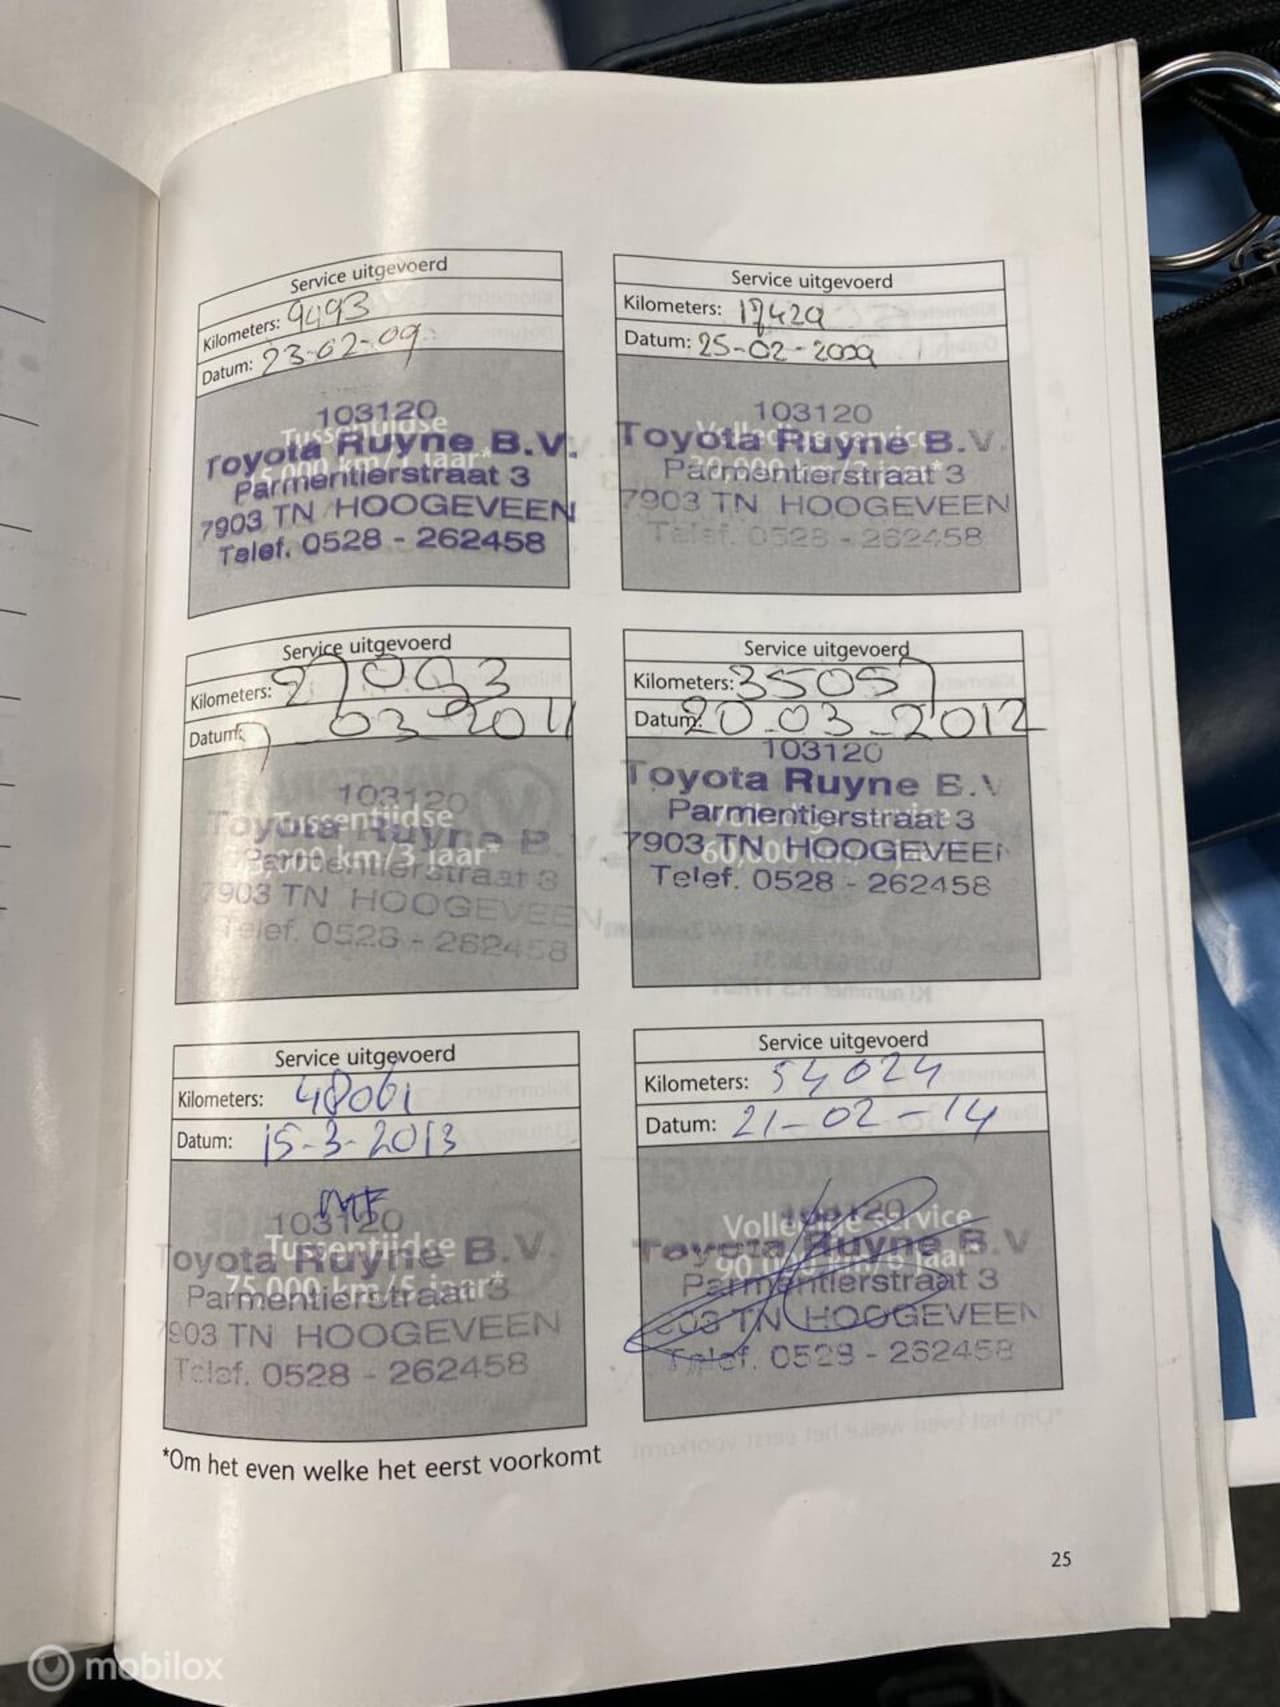 Service uitgevoerd
Kilometers: 9493
Datum: 23-02-09
103120
Tussentijdse
Toyota Ruyne B.V.
15,000 km/1 jaar*
Parmentierstraat 3
7903 TN HOOGEVEEN
Telef. 0528 - 262458
Service uitgevoerd
Kilometers: 17429
Datum: 25-02-2009
103120
Volledige service
Toyota Ruyne B.V.
30,000 km/2 jaar*
Parmentierstraat 3
7903 TN HOOGEVEEN
Telef. 0528 - 262458
Service uitgevoerd
Kilometers: 27093
Datum: 7 03-2011
103120
Tussentijdse
Toyota Ruyne B.V.
000 km/3 jaar*
Parmentierstraat 3
7903 TN HOOGEVEEN
Telef. 0528 - 262458
Service uitgevoerd
Kilometers: 35057
Datum: 20-03-2012
103120
Toyota Ruyne B.V
Volledige service
Parmentierstraat 3
60,000
7903 TN HOOGEVEEN
Telef. 0528 - 262458
Service uitgevoerd
Kilometers: 48061
Datum: 15-3-2013
MF
103120
Tussentijdse
Toyota Ruyne B.V.
75,000 km/5 jaar*
Parmentierstraat 3
7903 TN HOOGEVEEN
Telef. 0528 - 262458
Service uitgevoerd
Kilometers: 54024
Datum: 21-02-14
103120
Volledige service
Toyota Ruyne B.V
90,000 km/6 jaar*
Parmentierstraat 3
903 TN HOOGEVEEN
Telef. 0528 - 262458
*Om het even welke het eerst voorkomt
25
mobilox